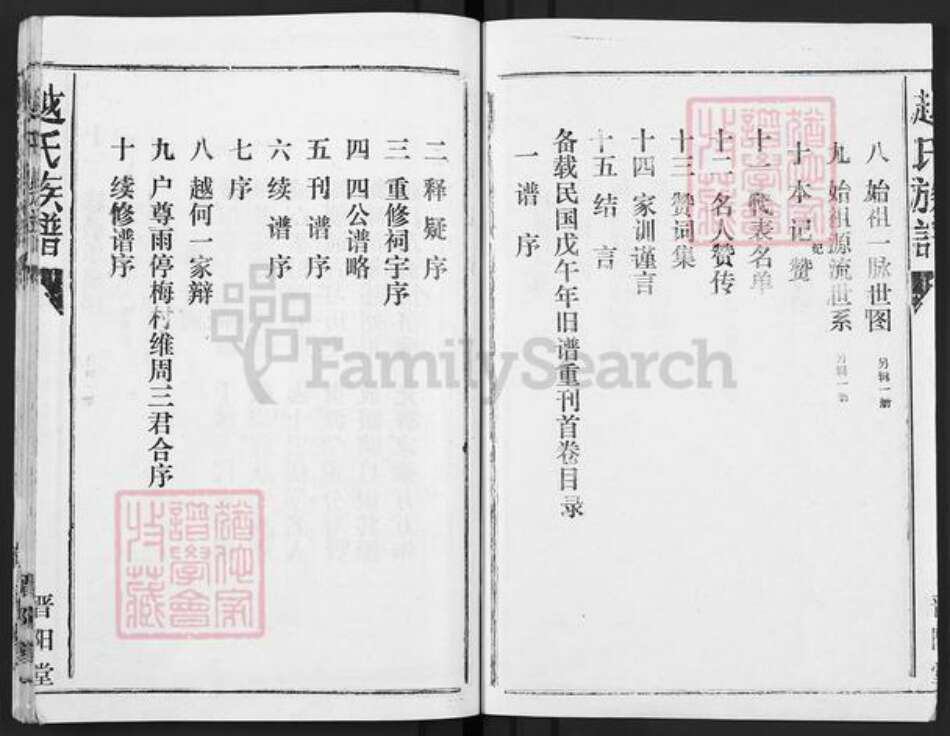 赵氏族谱
八 始祖一脉世图 另辑一册
九 始祖源流世系 另辑一册
十 本记赞
纪
十一 代表名单
十二 名人赞传
十三 赞词集
十四 家训谨言
十五 结言
备载民国戊午年旧谱重刊首卷目录
一 谱序
二 释疑序
三 重修祠宇序
四 四公谱略
五 刊谱序
六 续谱序
七 序
八 越何一家辩
九 户尊雨停梅村维周三君合序
十 续修谱序
赵氏族谱
晋阳堂
FamilySearch